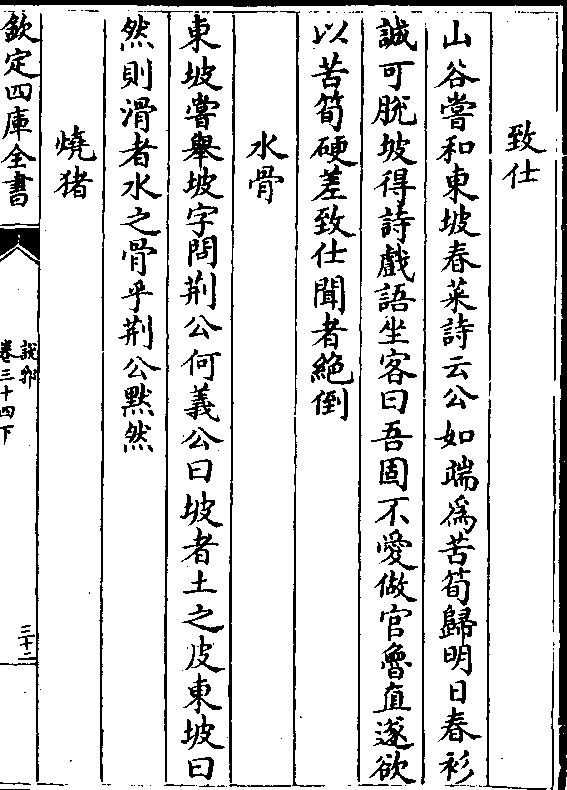 致仕
山谷嘗和東坡春菜詩云公如端爲苦筍歸明日春衫
誠可脫坡得詩戲語坐客曰吾固不愛做官魯直遂欲
以苦筍硬差致仕聞者絶倒
水骨
東坡嘗舉坡字問荆公何義公曰坡者土之皮東坡曰
然則滑者水之骨乎荆公黙然
燒猪
欽定四庫全書
說郛
卷三十四下
三十二